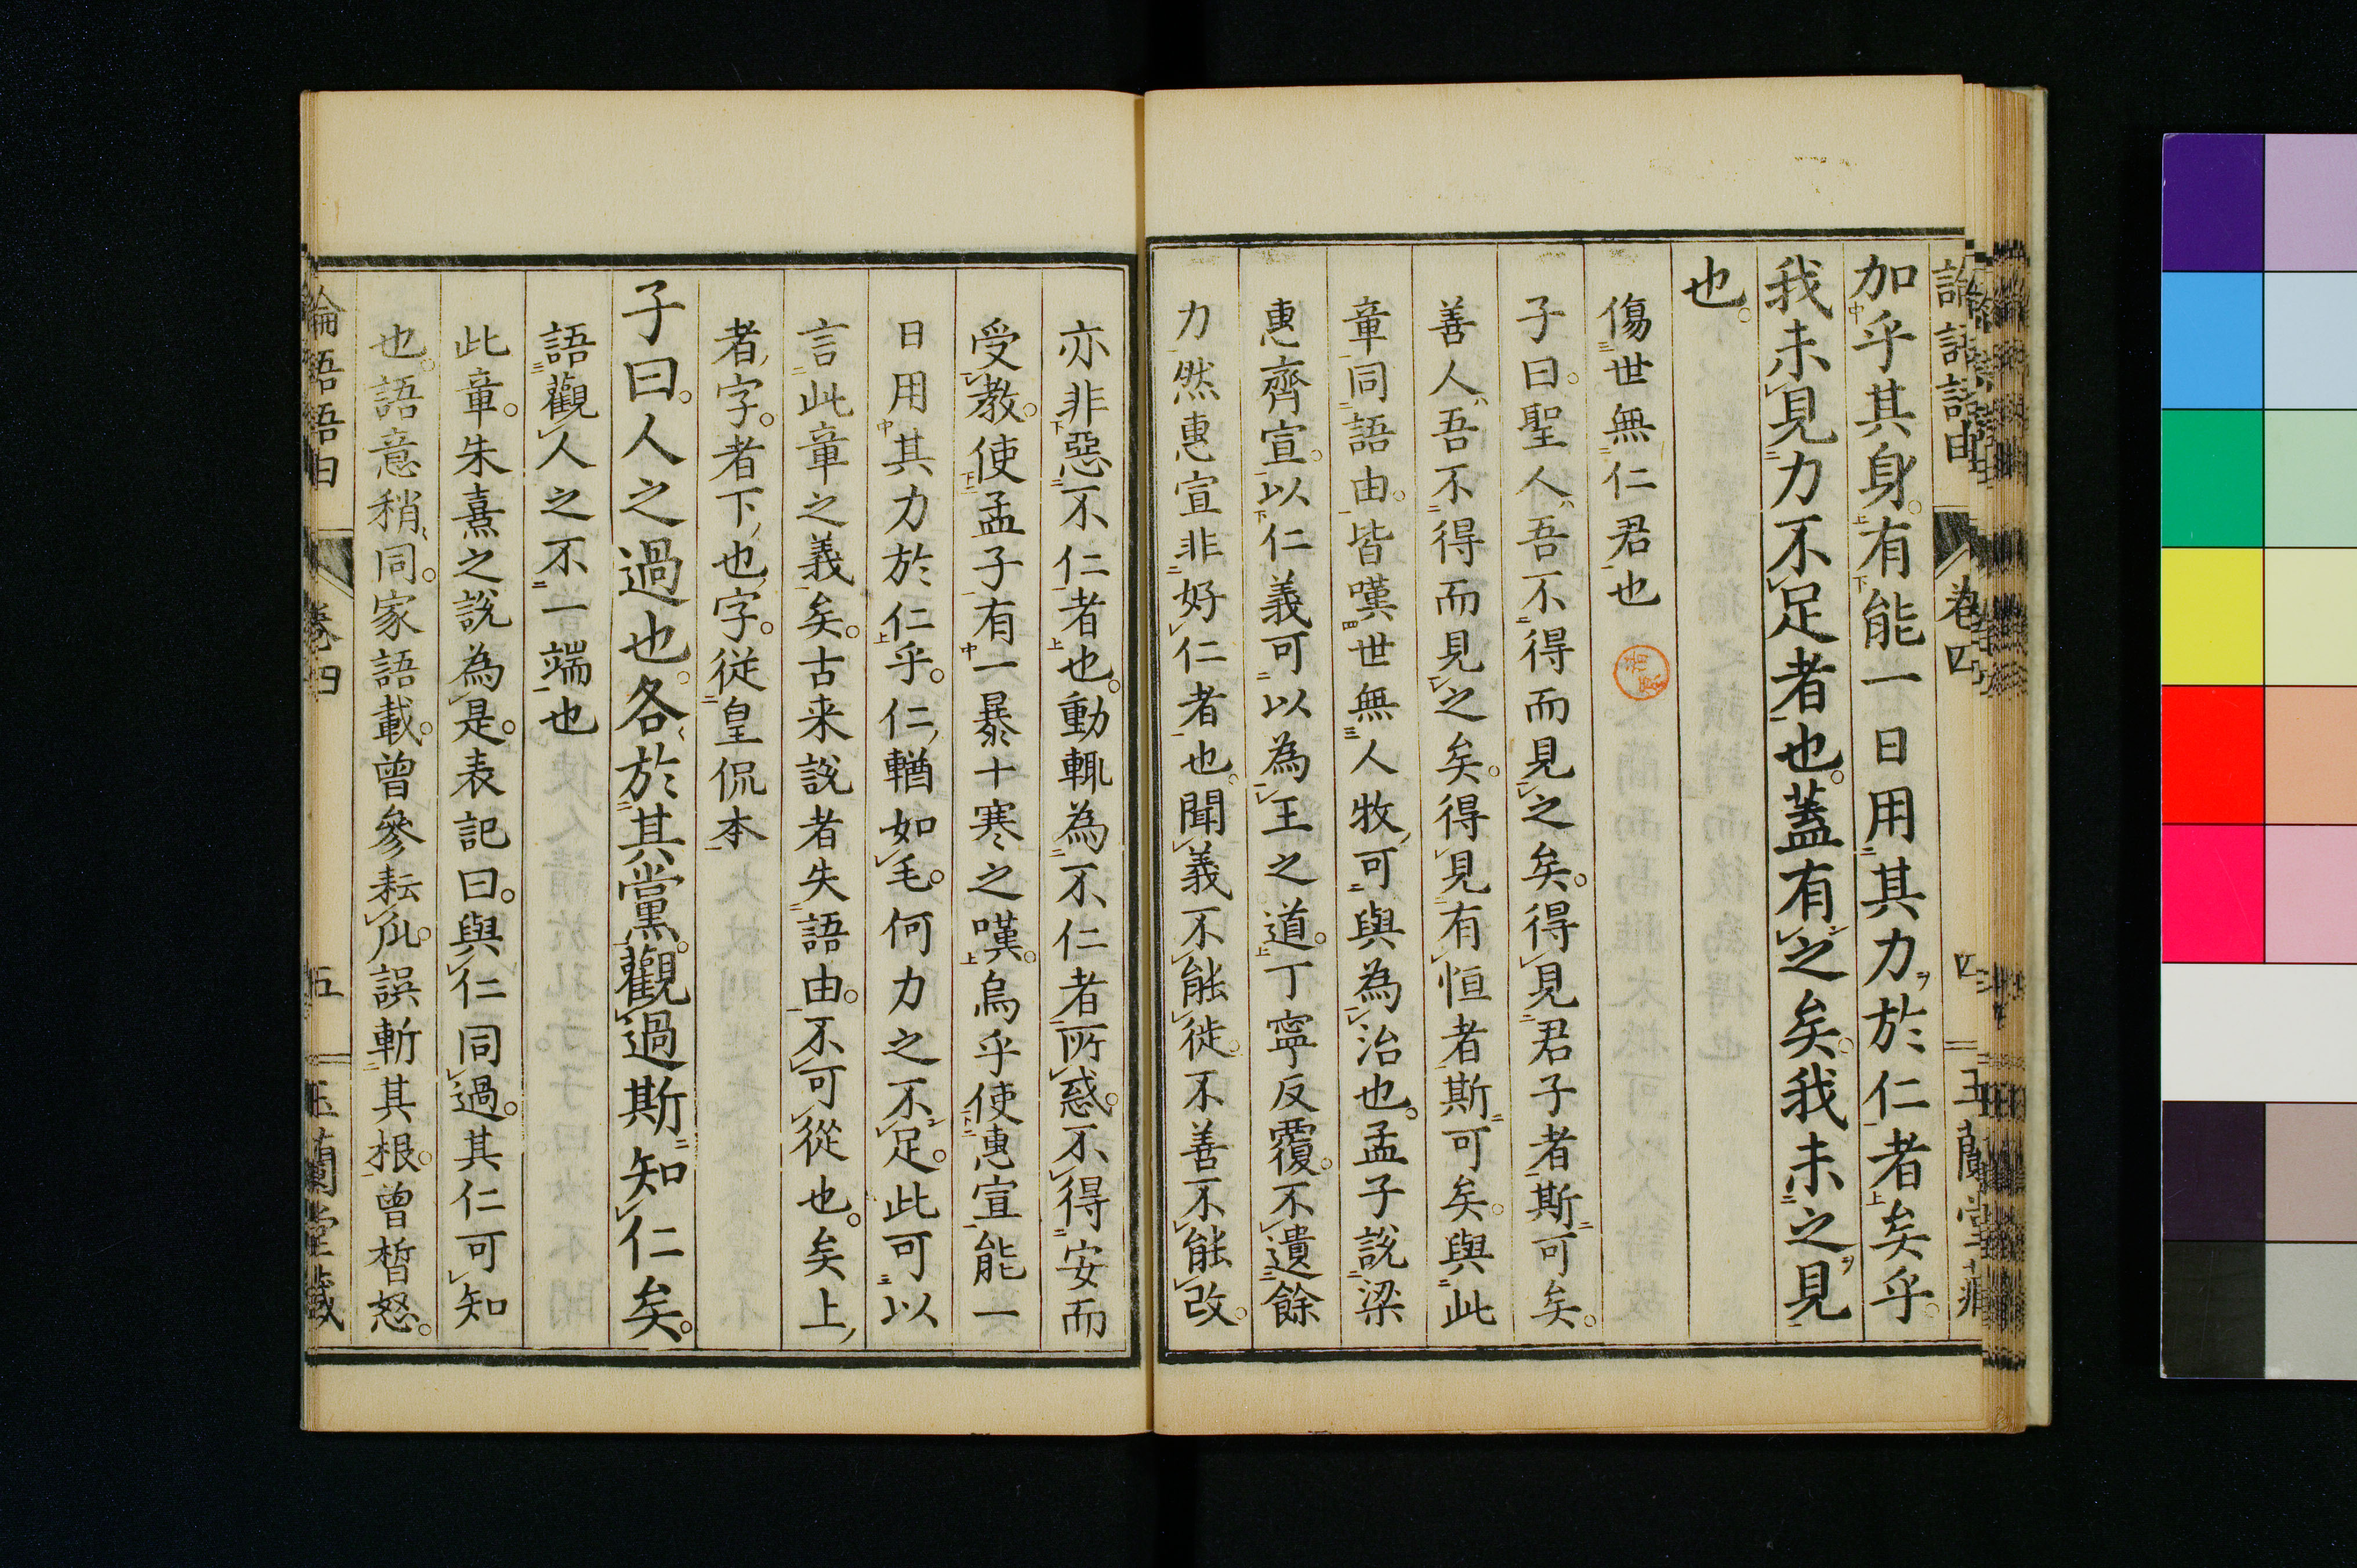 加乎其身有能一日用其力於仁者矣乎
我未見力不足者也蓋有之矣我未之見
也
傷世無仁君也
子曰聖人吾不得而見之矣得見君子者斯可矣
善人吾不得而見之矣得見有恒者斯可矣與此
章同語由皆嘆世無人牧可與為治也孟子說梁
惠齊宣以仁義可以為王之道丁寧反覆不遺餘
力然惠宣非好仁者也聞義不能徙不善不能改
亦非惡不仁者也動輒為不仁者所惑不得安而
受教使孟子有一暴十寒之嘆烏乎使惠宣能一
日用其力於仁乎仁輶如毛何力之不足此可以
言此章之義矣古来說者失語由不可從也矣上
者字者下也字從皇侃本
子曰人之過也各於其黨觀過斯知仁矣
語觀人之不一端也
此章朱熹之說為是表記曰與仁同過其仁可知
也語意稍同家語載曾參耘瓜誤斬其根曾皙怒
論語語由 卷四 五 玉蘭堂藏